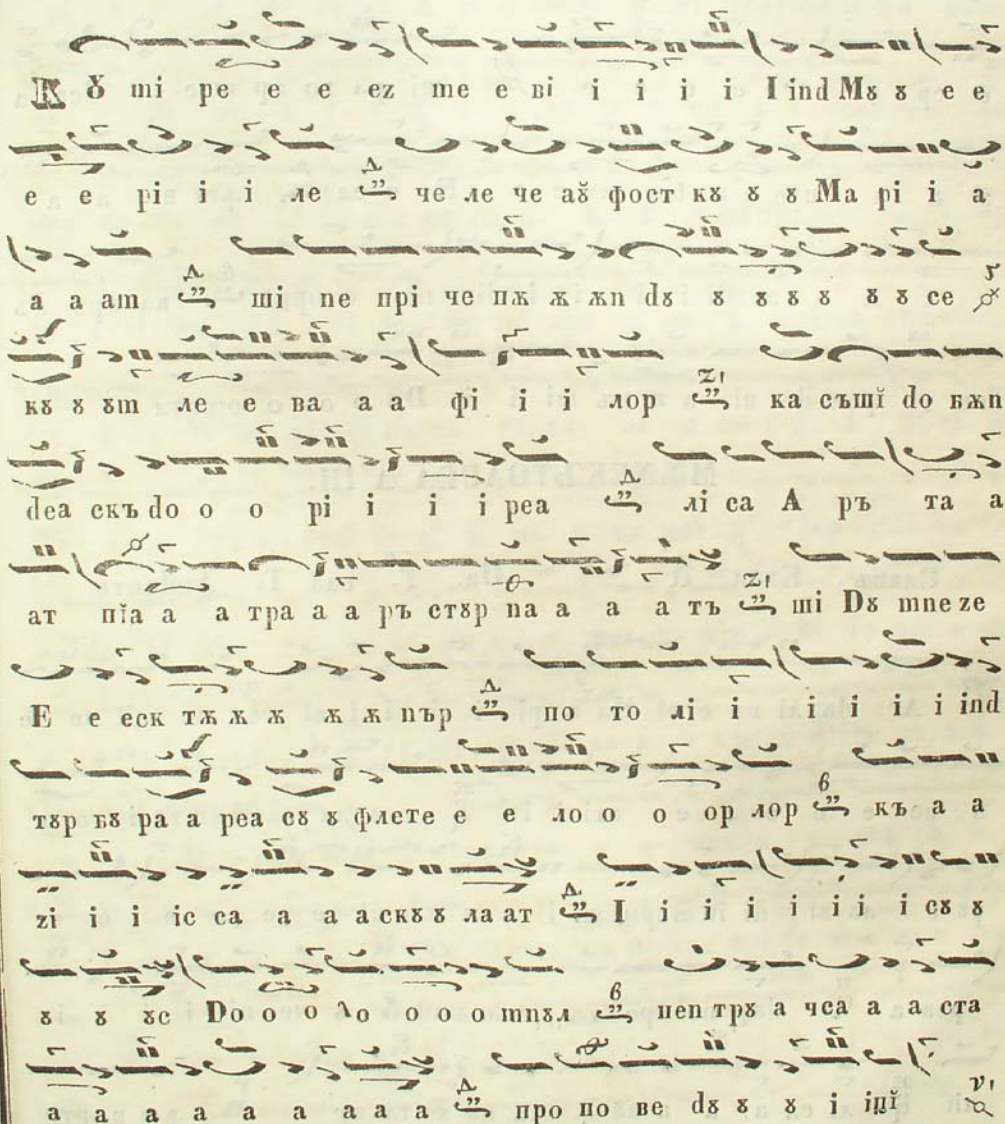 Кȣ mi ре е е ez me е ві і і і і I ind Мȣ ȣ е е
е е рі і і ле че ле че аȣ̆ фост кȣ ȣ ȣ Ма рі і а
а а am ші пе прі че пѫ ѫ ѫn dȣ ȣ ȣ ȣ ȣ ȣ ȣ се
кȣ ȣ ȣm ле е ва а а фі і і лор ка съшĭ do бѫn
dea скъ do о о рі і і і реа лі са А ръ та а
ат пĭа а а тра а а ръ стȣр па а а а тъ ші Dȣ mne ze
Е е еск тѫ ѫ ѫ ѫ ѫ пър по то лі і і і і і ind
тȣр бȣ ра а реа сȣ ȣ флете е е ло о о ор лор къ а а
zi і і іс са а а а скȣ ȣ ла ат І і і і і і і і сȣ ȣ
ȣ ȣ ȣс Do о о ло о о о mnȣл пеп трȣ а чса а а ста
а а а а а а а а а про по ве dȣ ȣ ȣ і іпĭ